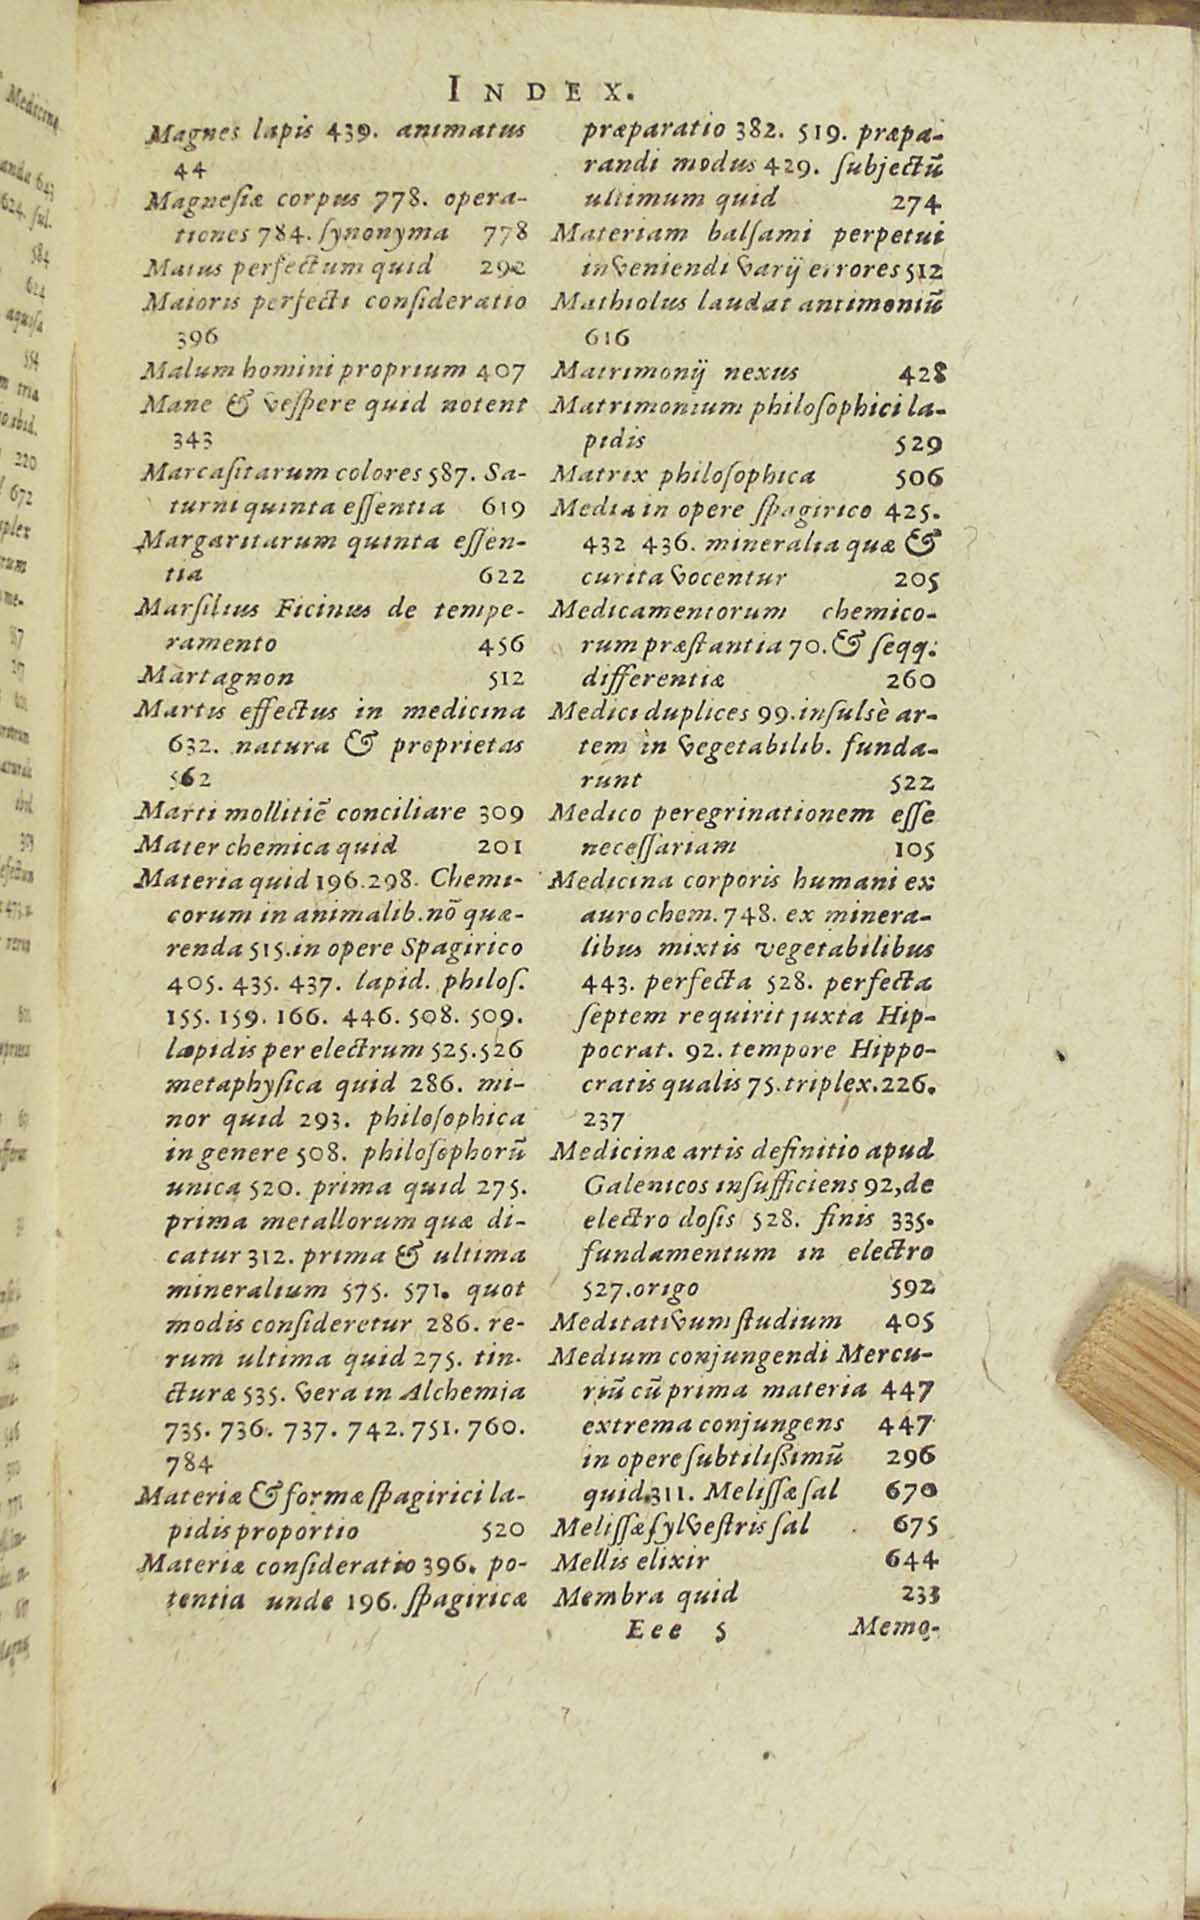 INDEX.
Magnes lapis 439. animatus
44
Magneſiæ corpus 778. opera-
tiones 784. ſynonyma 778
Maius perfectum quid 292
Maioris perfecti conſideratio
396
Malum homini proprium 407
Mane & veſpere quid notent
343
Marcaſitarum colores 587. Sa-
turni quinta eſſentia 619
Margaritarum quinta eſſen-
tia 622
Marſilius Ficinus de tempe-
ramento 456
Martagnon 512
Martis effectus in medicina
632. natura & proprietas
562
Marti mollitiē conciliare 309
Mater chemica quid 201
Materia quid 196.298. Chemi-
corum in animalib. nō quæ-
renda 515. in opere Spagirico
405. 435. 437. lapid. philoſ.
155. 159. 166. 446. 508. 509.
lapidis per electrum 525.526
metaphyſica quid 286. mi-
nor quid 293. philoſophica
in genere 508. philoſophorū
unica 520. prima quid 275.
prima metallorum quæ di-
catur 312. prima & ultima
mineralium 575. 571. quot
modis conſideretur 286. re-
rum ultima quid 275. tin-
cturæ 535. vera in Alchemia
735. 736. 737. 742. 751. 760.
784
Materiæ & formæ ſpagirici la-
pidis proportio 520
Materiæ conſideratio 396. po-
tentia unde 196. ſpagiricæ
præparatio 382. 519. præpa-
randi modus 429. ſubjectū
ultimum quid 274
Materiam balſami perpetui
inveniendi varij errores 512
Mathiolus laudat antimoniū
616
Matrimonij nexus 428
Matrimonium philoſophici la-
pidis 529
Matrix philoſophica 506
Media in opere ſpagirico 425.
432 436. mineralia quæ &
cur ita vocentur 205
Medicamentorum chemico-
rum præſtantia 70. & ſeqq:
differentiæ 260
Medici duplices 99. inſulsè ar-
tem in vegetabilib. funda-
runt 522
Medico peregrinationem eſſe
neceſſariam 105
Medicina corporis humani ex
auro chem. 748. ex minera-
libus mixtis vegetabilibus
443. perfecta 528. perfecta
ſeptem requirit juxta Hip-
pocrat. 92. tempore Hippo-
cratis qualis 75. triplex. 226.
237
Medicinæ artis definitio apud
Galenicos inſufficiens 92, de
electro doſis 528. finis 335.
fundamentum in electro
527. origo 592
Meditativum ſtudium 405
Medium conjungendi Mercu-
riū cū prima materia 447
extrema conjungens 447
in opere ſubtiliſſimū 296
quid 311. Meliſſæ ſal 670
Meliſſæ ſylveſtris ſal 675
Mellis elixir 644
Membra quid 233
Eee 5 Memo-